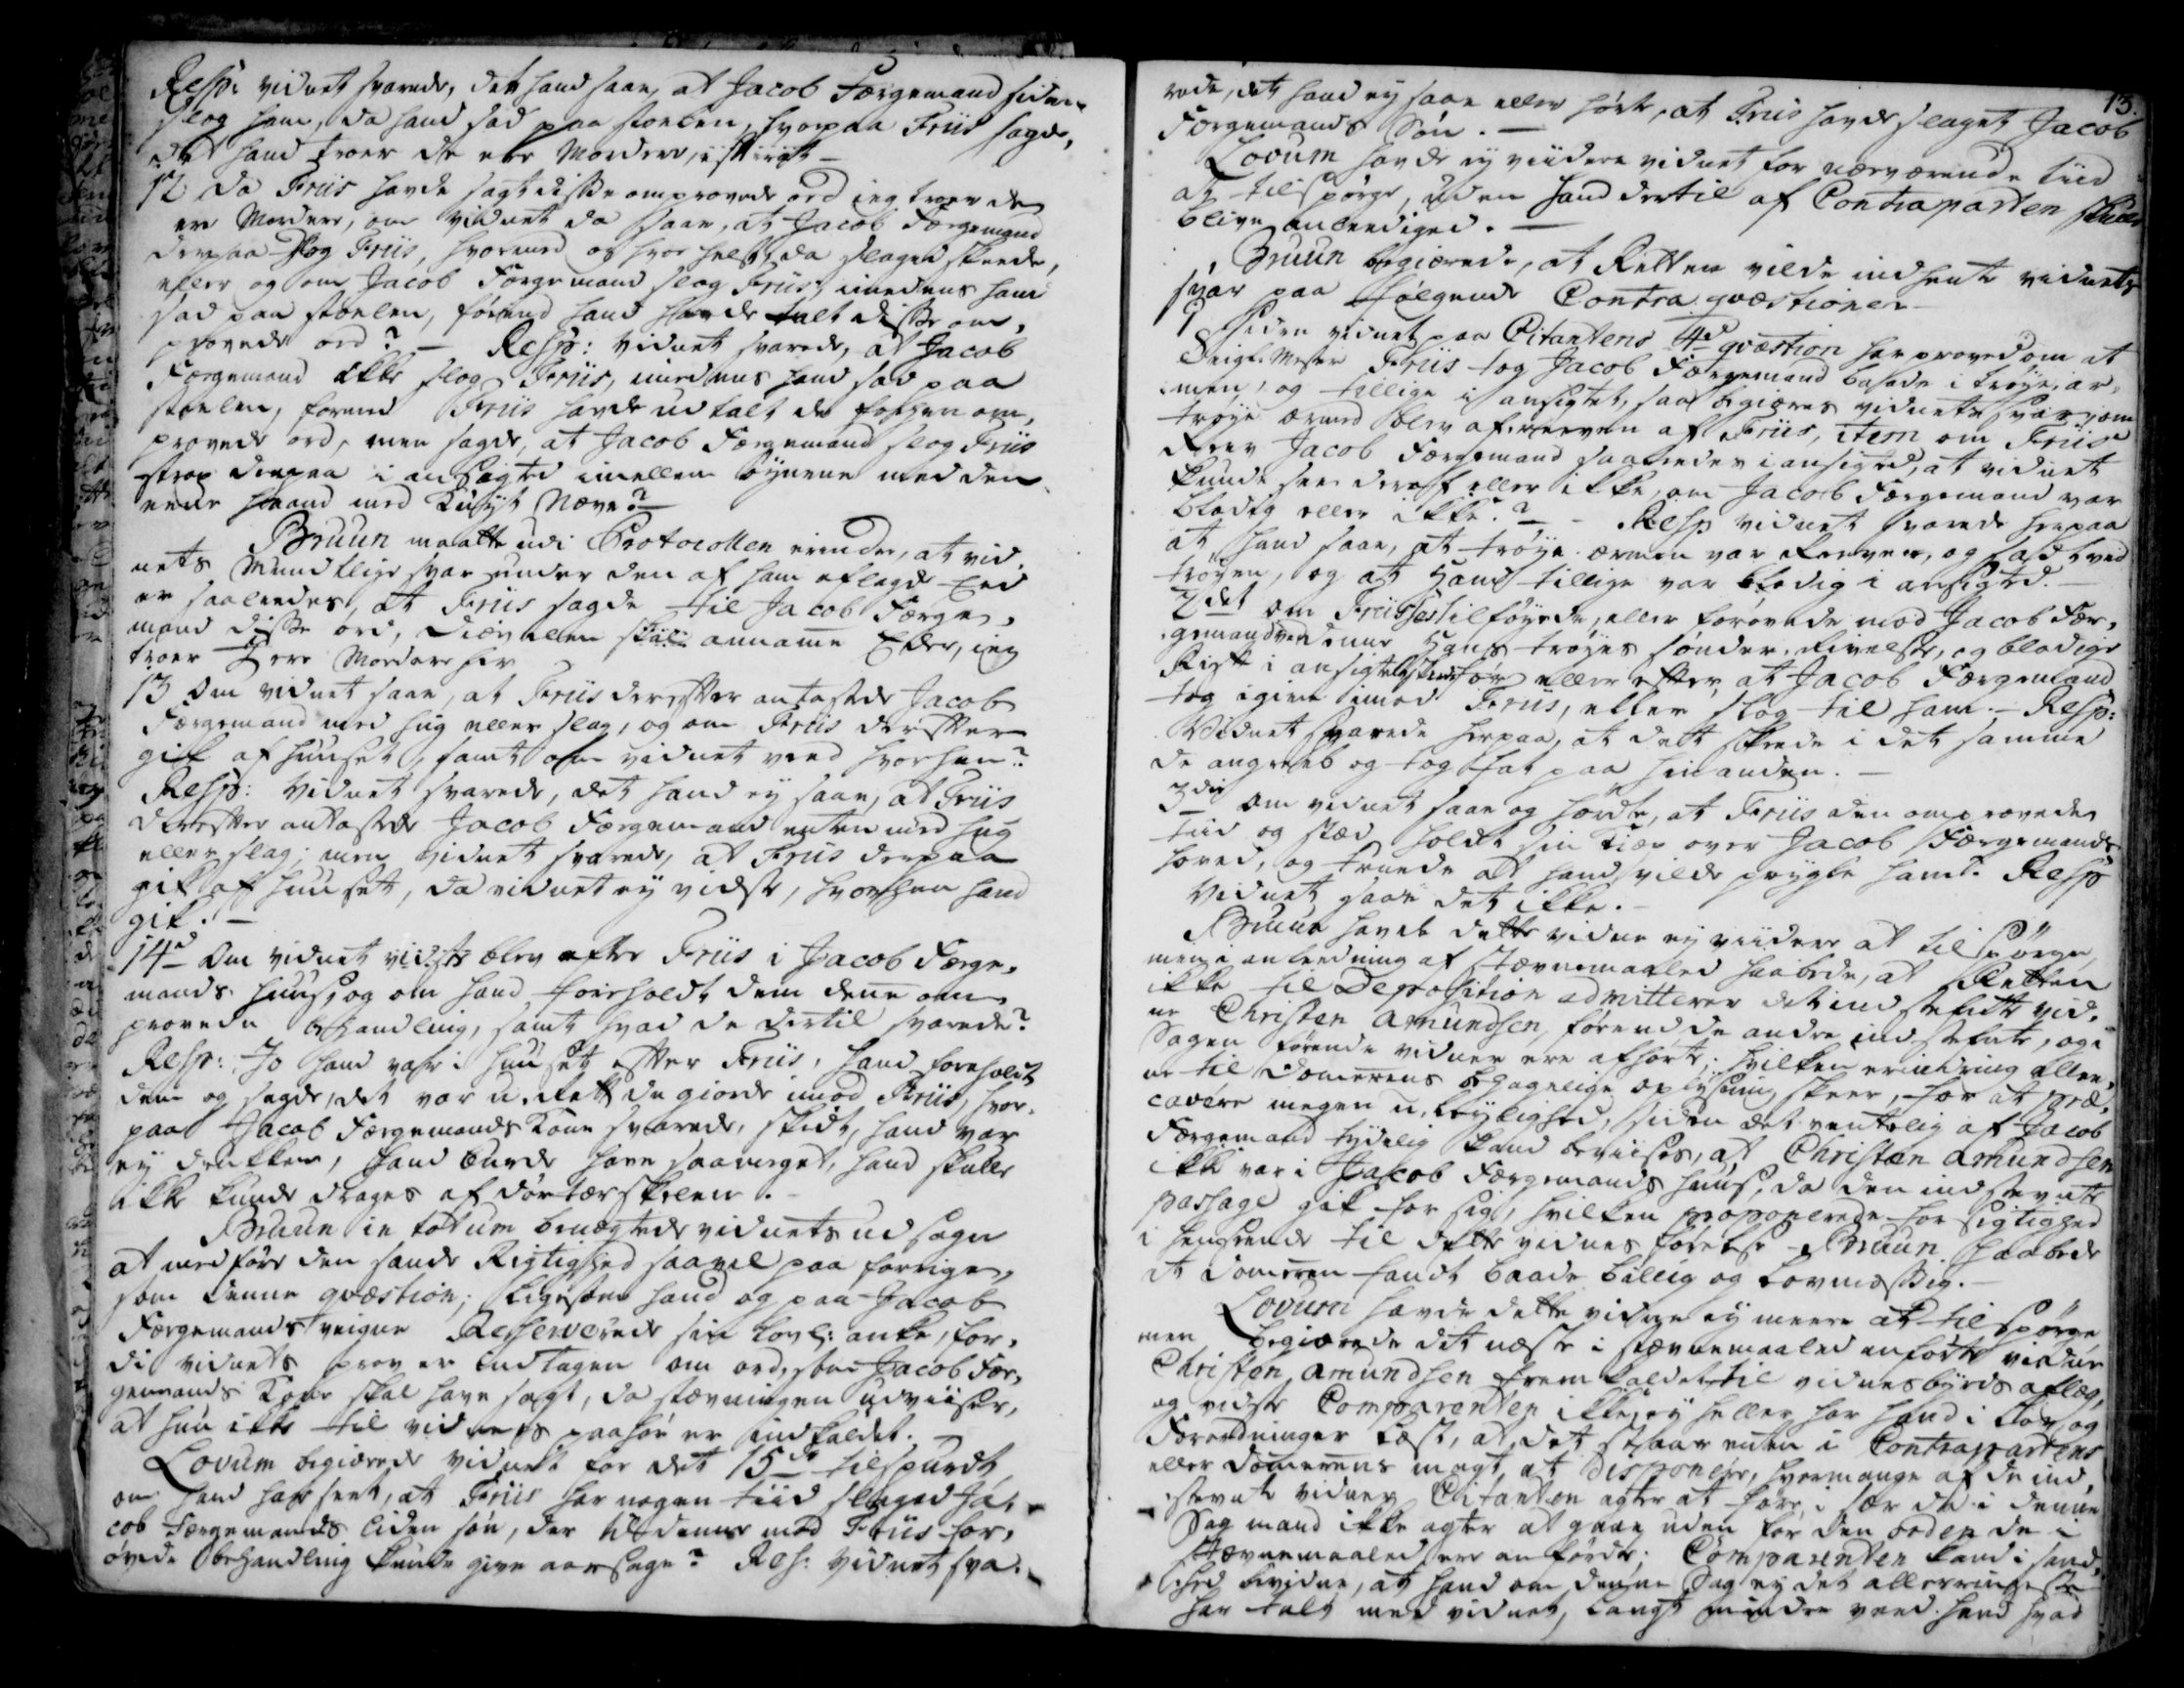 Resp: vidnet svarede, det hand saae, at Jacob Færgemand siden
slog ham, da hand sad paa stoelen, hvorpaa Friis sagde,
at hand troer de ere Mordere,
12 da Friis havde sagt disse omprovede ord jeg troer de
ere Mordere, om vidnet da saae, at Jacob Færgemand
derpaa slog Friis, hvormed og hvor helst, da slaged skeede,
eller og om Jacob Færgemand slog Friis, imedens hand
sad paa stoelen, førend hand hafde talt disse om-
provede ord? — Resp: vidnet svarede, at Jacob
Færgemand ikke slog Friis, imedens hand sad paa
stoelen, førend Friis havde udtalt de om-
provede ord, men sagde, at Jacob Færgemand slog Friis
strax derpaa i ansigted imellem øynene med den
eene haand med Knyt Næve? —
Bruun maatte udi Protocollen erindre, at vid-
nets Mundtlige svar under den af ham aflagde Eed
er saaledes, at Friis sagde til Jacob Færge-
mand disse ord, Dievelen skal annamme Eder, jeg
troer I ere Mordere her
13 Om vidnet saae, at Friis derefter antastede Jacob
Færgemand med hug eller slag, og om Friis derefter
gik af huuset, samt om vidnet veed hvorhen?
Resp: Vidnet svarede, det hand ey saae, at Friis
derefter antastede Jacob Færgemand enten med hug
eller slag; men vidnet svarede, at Friis derpaa
gik af huuset, da vidnet ey vidste, hvorhen hand
gik. —
14d Om vidnet vidste blev efter Friis i Jacob Færge-
mands huus, og om hand foreholdt dem denne om-
provede behandling, samt hvad de dertil svarede?
Resp: Jo hand var i huuset efter Friis, hand foreholdt
dem og sagde, det var u-Rett de giorde imod Friis, hvor-
paa Jacob Færgemands Kone svarede, skidt, hand var
ey drukken, hand burde have saameget, hand skulle
ikke kunde drages af dørtærskelen. —
Bruun in totum benægtede vidnets udsagn
at medføre den sande Rigtighed saavel paa forrige,
som denne qvæstion; ligesom hand og paa Jacob
Færgemands veigne Reserverede sin lovl: anke, for-
di vidnets prov er indtagen om ord, som Jacob Fær-
gemands Kone skal have sagt, da stævningen udviiser,
at hun ikke til vidners paahør er indkaldet. —
Lovum begiærede vidnet for det 15de tilspurdt
om hand har seet, at Friis har nogen tiid slaged Ja-
cob Færgemands liden søn, der til denne mod Friis for-
øvede behandling kunde give aarsage? Resp: Vidnet sva-
13.
rede, det hand ey saae eller hørte, at Friis havde slaget Jacob
Færgemands Søn. —
Lovum havde ey viidere vidnet for nærværende tiid
at tilspørge, uden hand dertil af Contraparten skulle
blive anleediged. —
Bruun begiærede, at Retten vilde indhente vidnets
svar paa følgende Contra qvæstioner
1 Siden vidnet paa Citantens 4d qvæstion har proved om at
Seigl: Mester Friis tog Jacob Færgemand baade i trøye, ær-
men, og tillige i ansigtet, saa begiæres vidnets svar, om
trøye ærmed blev afreeven af Friis, item om Friis
Reev Jacob Færgemand saaledes i ansigted, at vidnet
kunde see deraf eller ikke, om Jacob Færgemand var
blodig eller ikke? — Resp vidnet svarede herpaa
at hand saae, at trøye ærmen var Reeven, og sad ved
trøyen, og at Hand tillige var blodig i ansigted. —
2det om Friises tilføyede, eller forøvede mod Jacob Fær-
gemand ved denne Hans trøyes sønder-Rivelse, og blodige
Rift i ansigtet skeede før eller efter at Jacob Færgemand
tog igien imod Friis, eller slog til ham. — Resp:
Vidnet svarede herpaa, at dett skeede i det samme
de angreeb og tog fat paa hinanden. —
3die Om vidnet saae og hørdte, at Friis den omprovede
tiid og sted holdt sin Kiæp over Jacob Færgemands
hoved, og truede at hand vilde prygle ham. Resp
Vidnet saae det ikke. —
Bruun havde dette vidne ey viidere at tilspørge
men i anleedning af stævnemaaled haabede, at Retten
ikke til Deposition admitterer det indstefnte vid-
ne Christen Amundsen, førend de andre indstefnte, og i
Sagen førende vidner ere afhørte; hvilken erindring allee-
ne til Domerens behagelige oplysning skeer, for at præ-
cavere megen u-leylighed, siden det ventelig af Jacob
Færgemand tydelig kand beviises, at Christen Amundsen
ikke var i Jacob Færgemands huus, da den indstevnte
passage gik for sig, hvilken proponerede forsigtighed
i henseende til dette vidnes førelse Bruun haabede
at Domeren fandt baade billig og Lovmæssig. —
Lovum havde dette vidne ey meere at tilspørge
men begiærede det næste i stævnemaaled anførte vidne
Christen Amundsen fremkaldet til vidnesbyrds aflæg,
og vidste Comparenten ikke, ey heller har hand i Lov og
Forordninger læst, at det staaer enten i Contrapartens
eller Domerens magt at disponere, hvormange af de ind-
stevnte vidner Citanten agter at føre, i sær da i denne
Sag mand ikke agter at gaae uden for den orden de i
stævnemaaled ere anførde; Comparenten kand i sand-
hed bevidne, at hand om denne Sag ey det allerringeste
har talt med vidnet, langt mindre veed hand hvad